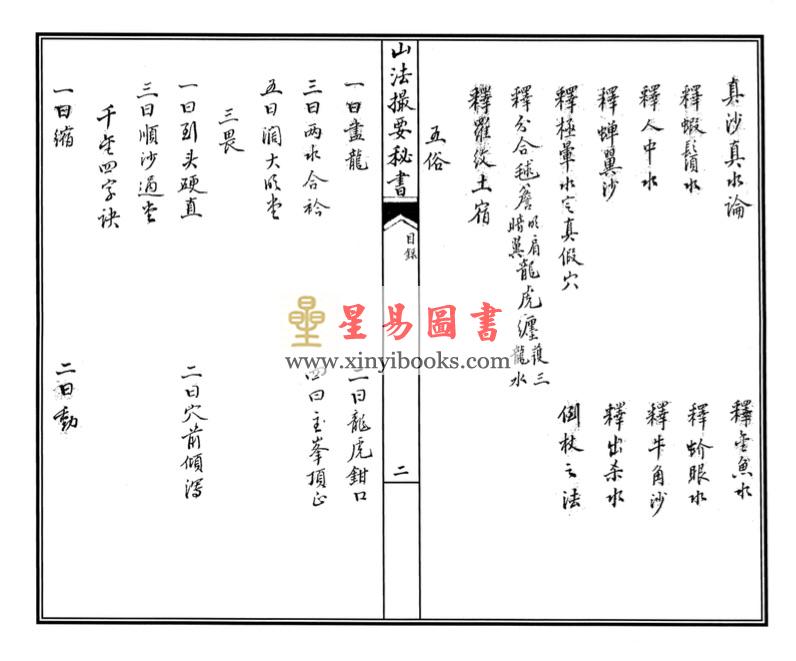 真沙真水論
釋金魚水
釋蝦鬚水
釋蚧眼水
釋人中水
釋牛角沙
釋蟬翼沙
釋出杀水
釋極暈水定真假穴
倒杖之法
釋分合毬簷明肩暗翼龍虎纏護三龍水
釋羅纹土宿
五俗
山法撮要秘書
目録
二
一曰盡龍
二曰龍虎鉗口
三曰两水合衿
四曰主峯頂正
五曰濶大明堂
三畏
一曰到头硬直
二曰穴前傾瀉
三曰順沙過堂
千金四字訣
一曰缩
二曰動
星易圖書
www.xinyibooks.com